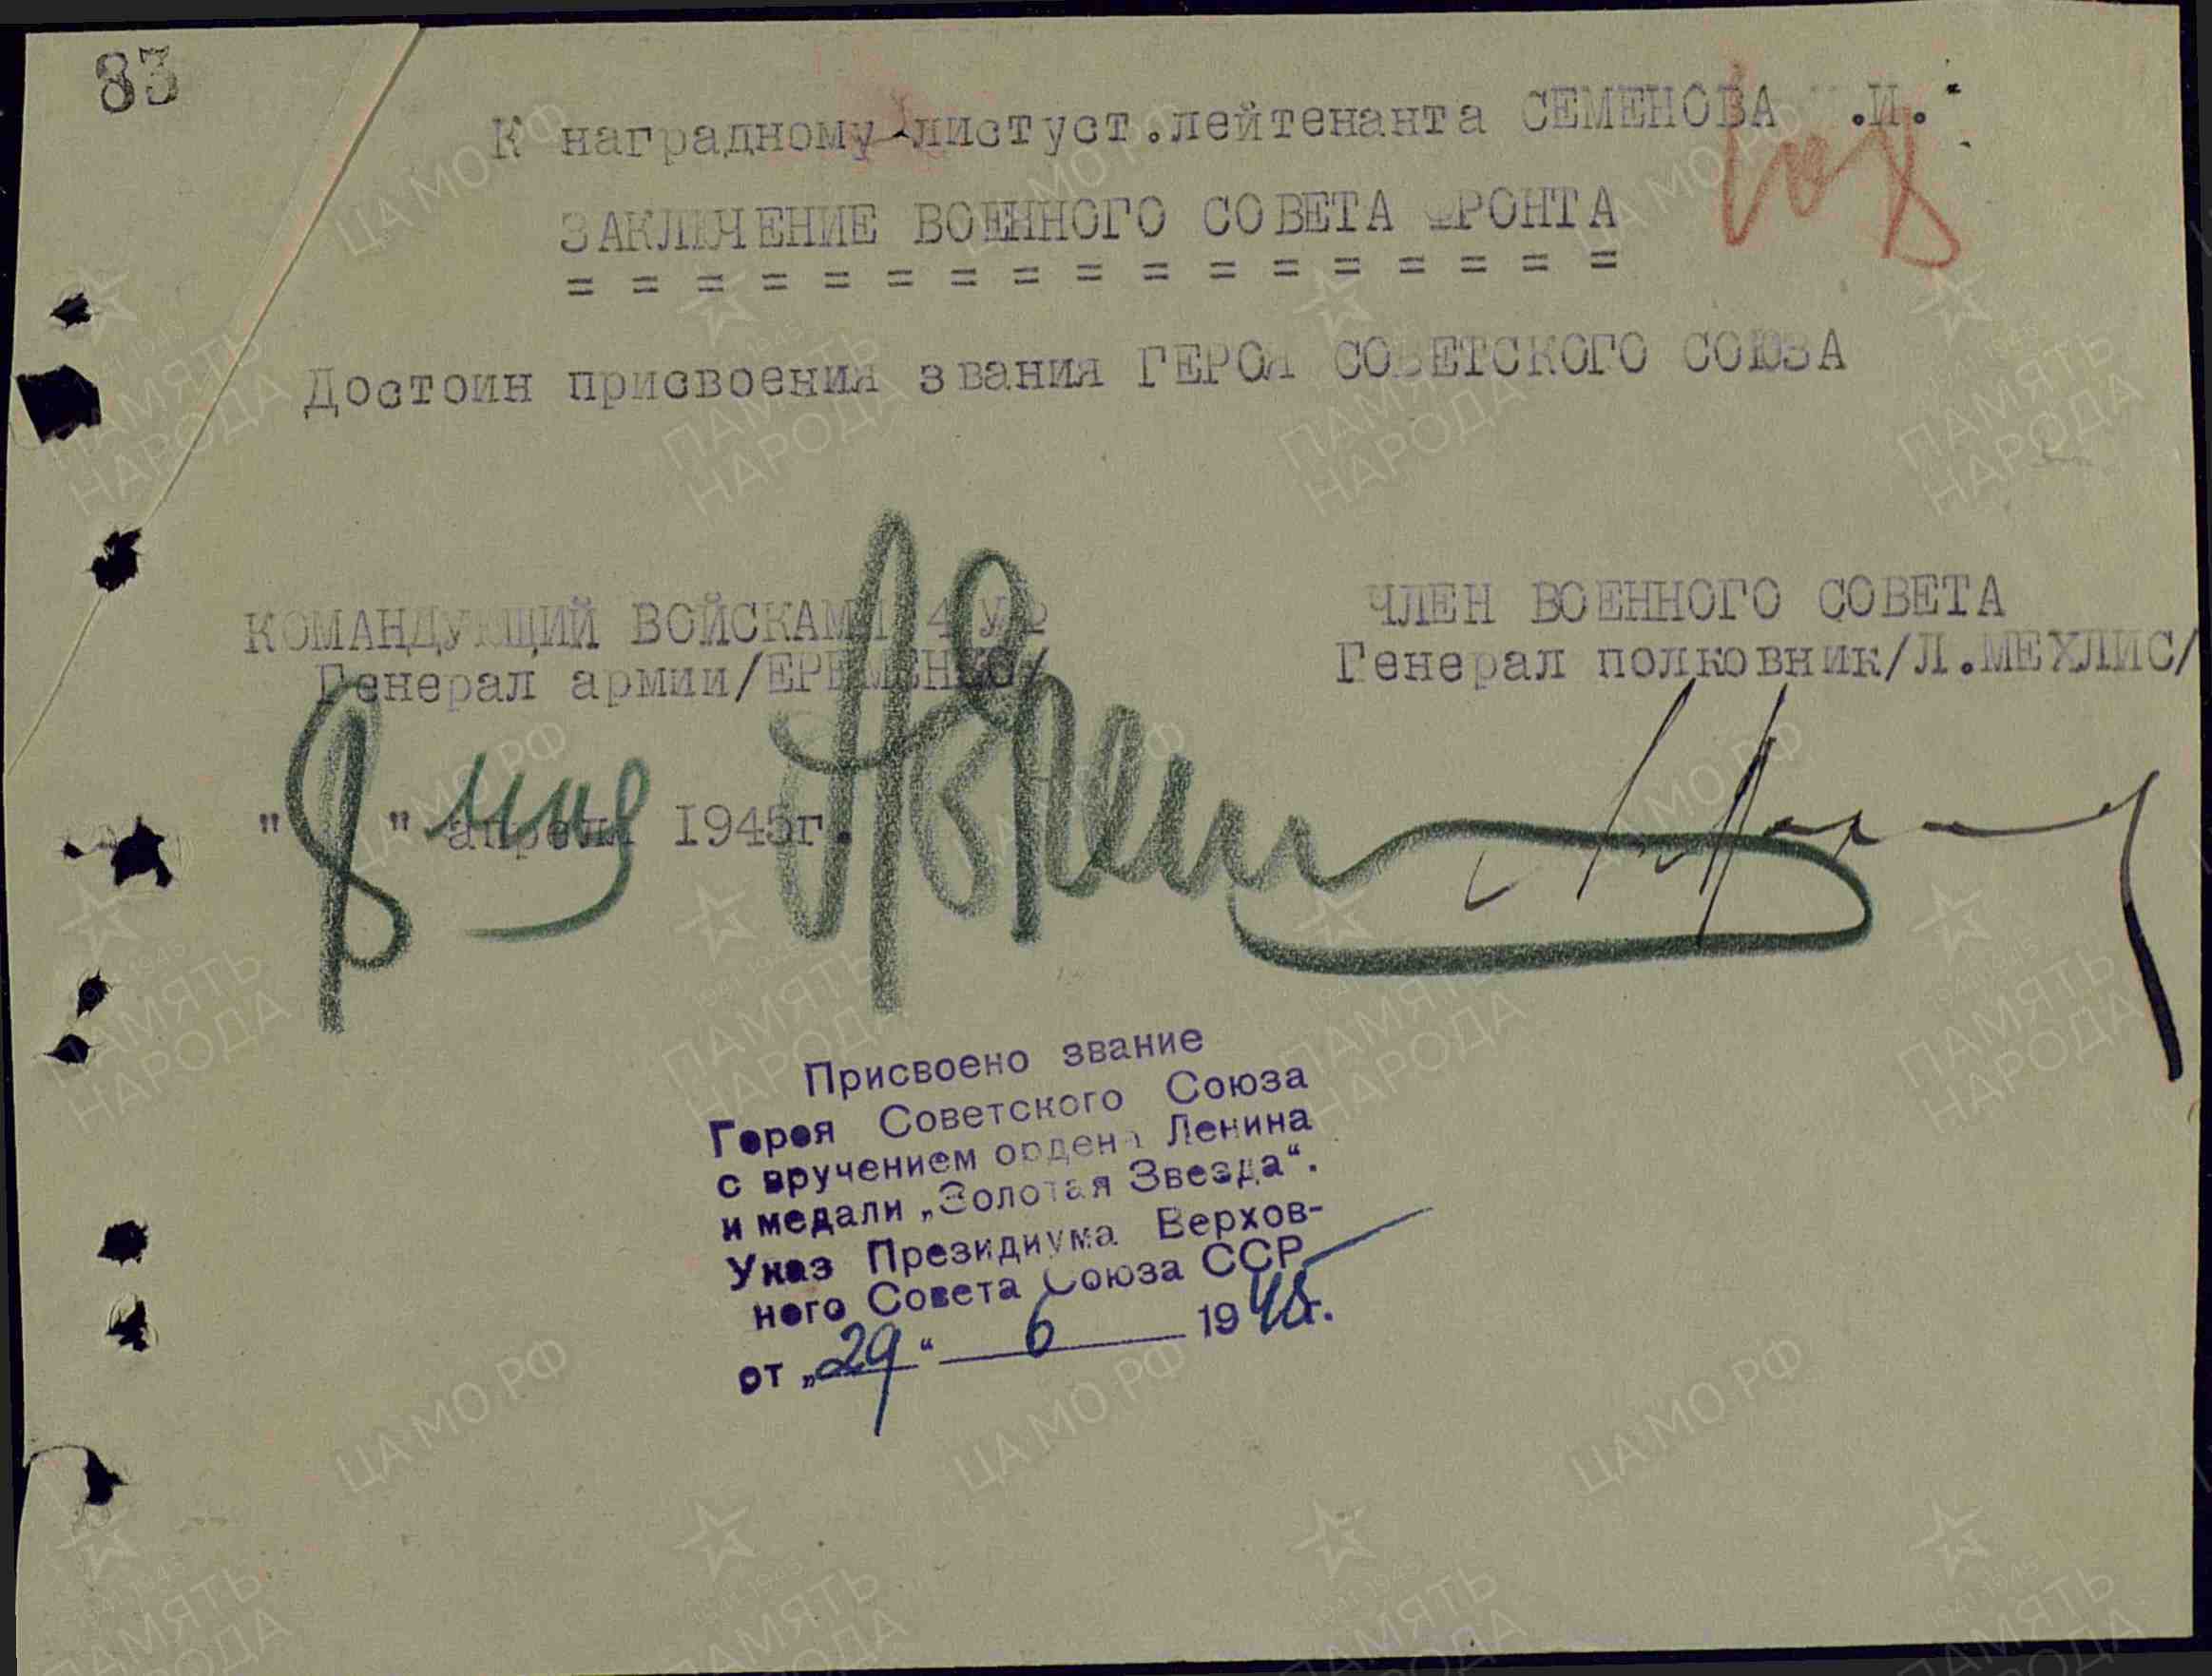 83
К наградному листу ст.лейтенанта СЕМЕНОВА .И.
ЗАКЛЮЧЕНИЕ ВОЕННОГО СОВЕТА ФРОНТА
= = = = = = = = = = = = = = = = =
Достоин присвоения звания ГЕРОЯ СОВЕТСКОГО СОЮЗА
КОМАНДУЮЩИЙ ВОЙСКАМИ 4 УФ
Генерал армии/ЕРЕМЕНКО/
ЧЛЕН ВОЕННОГО СОВЕТА
Генерал полковник/Л.МЕХЛИС/
"8" мая апреля 1945г.
Присвоено звание
Героя Советского Союза
с вручением ордена Ленина
и медали „Золотая Звезда“.
Указ Президиума Верхов-
ного Совета Союза ССР
от „29“ 6 1945г.
ЦА МО РФ
ПАМЯТЬ
НАРОДА
1941-1945